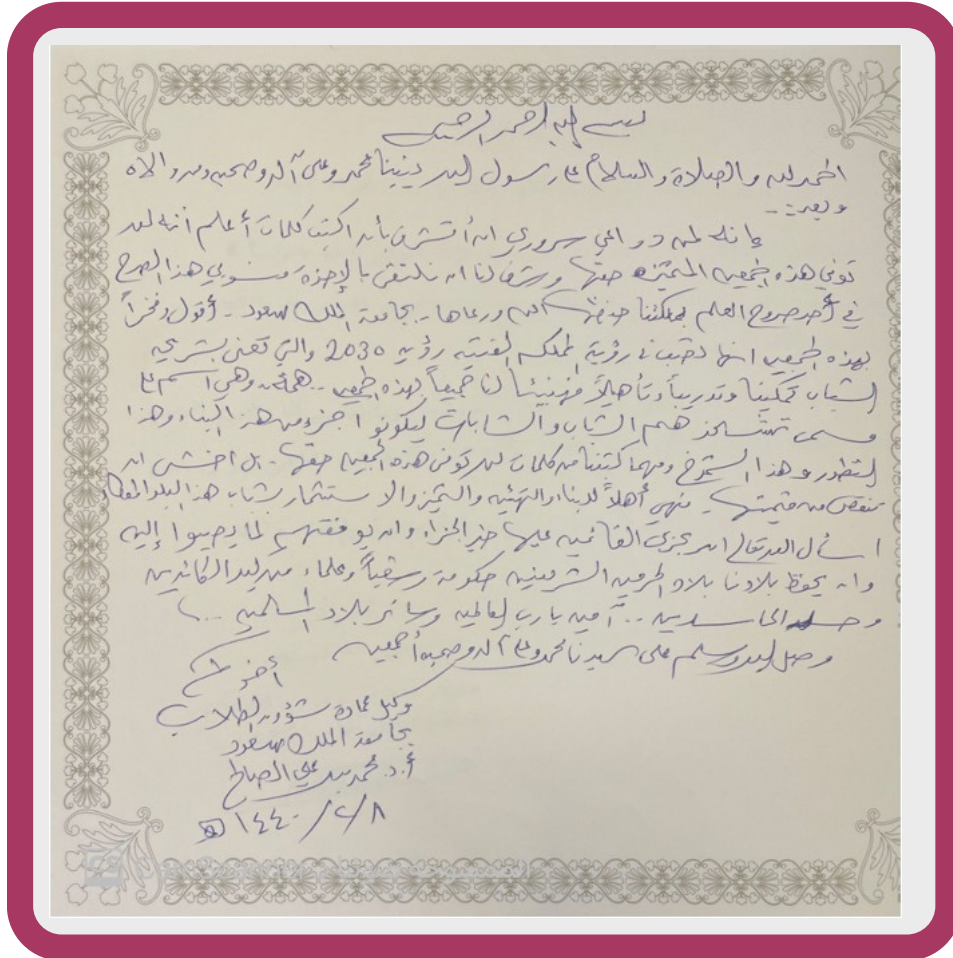 بسم الله الرحمن الرحيم
الحمد لله والصلاة والسلام على رسول الله نبينا محمد وعلى آله وصحبه ومن والاه
وبعد..
فإنه لمن دواعي سروري أن أتشرف بأن اكتب كلمات أعلم أنها لن
توفي هذه الجمعيه المتميزه حقها وشرف لنا ان نلتقي بالإخوة منسوبي هذا الصرح
في أحد صروح العلم بمملكتنا حفظها الله ورعاها - بجامعة الملك سعود - أقول وفخراً
بهذه الجمعيه انها تصب في رؤية المملكه الفتيه رؤيه 2030 والتي تعنى بشريحه
الشباب تمكيناً وتدريباً وتأهيلاً فهنيئاً لنا جميعاً بهذه الجمعيه .. همة .. وهي اسم على
مسمى تستحذ همم الشباب والشابات ليكونوا جزء من هذ البناء وهذا
التطور وهذا الشموخ ومهما كتبنا من كلمات لن توفي هذه الجمعيه حقها .. بل اخشى ان
تنقص من قيمتها .. فهي أهلاً للبناء والتهيئه والتميز والاستثمار بشباب هذا البلد المعطاء
اسأل الله تعالى ان يجزي القائمين عليها خير الجزاء وان يوفقهم لما يصبوا إليه
وان يحفظ بلادنا بلاد الحرمين الشريفين حكومة وشعباً وعلماء من كيد الكائدين
وحسد الحاسدين .. آمين يارب العالمين وسائر بلاد المسلمين ..
وصل الله وسلم على سيدنا محمد وعلى آله وصحبه أجمعين
أخوكم
وكيل عمادة شؤون الطلاب
بجامعة الملك سعود
أ.د. محمد بن علي الصالح
١٤٤٠/٢/٨ هـ